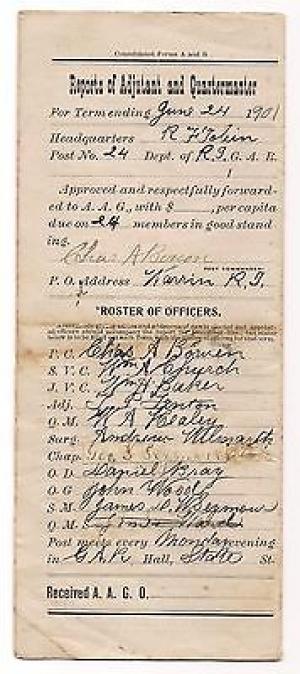 Consolidated Forms A and B.
Reports of Adjutant and Quartermaster
For Term ending June 24 1901
Headquarters R F Tobin
Post No. 24 Dept. of R.I. G. A. R.
Approved and respectfully forward-
ed to A. A. G., with $ , per capita
due on 24 members in good stand
ing.
Chas A Bowen
POST COMMANDER
P. O. Address Warrin R.I.
*ROSTER OF OFFICERS.
P. C. Chas A Bowen
S. V. C. Wm A Church
J. V. C. Wm H Baker
Adj. Fenton
Q. M. W A Healey
Surg. Andrew
Chap. Geo
O. D. Daniel Bray
O. G John Wood
S. M. James
Q. M.
Post meets every Monday evening
in G.A.R. Hall, State St.
Received A. A. G. O.